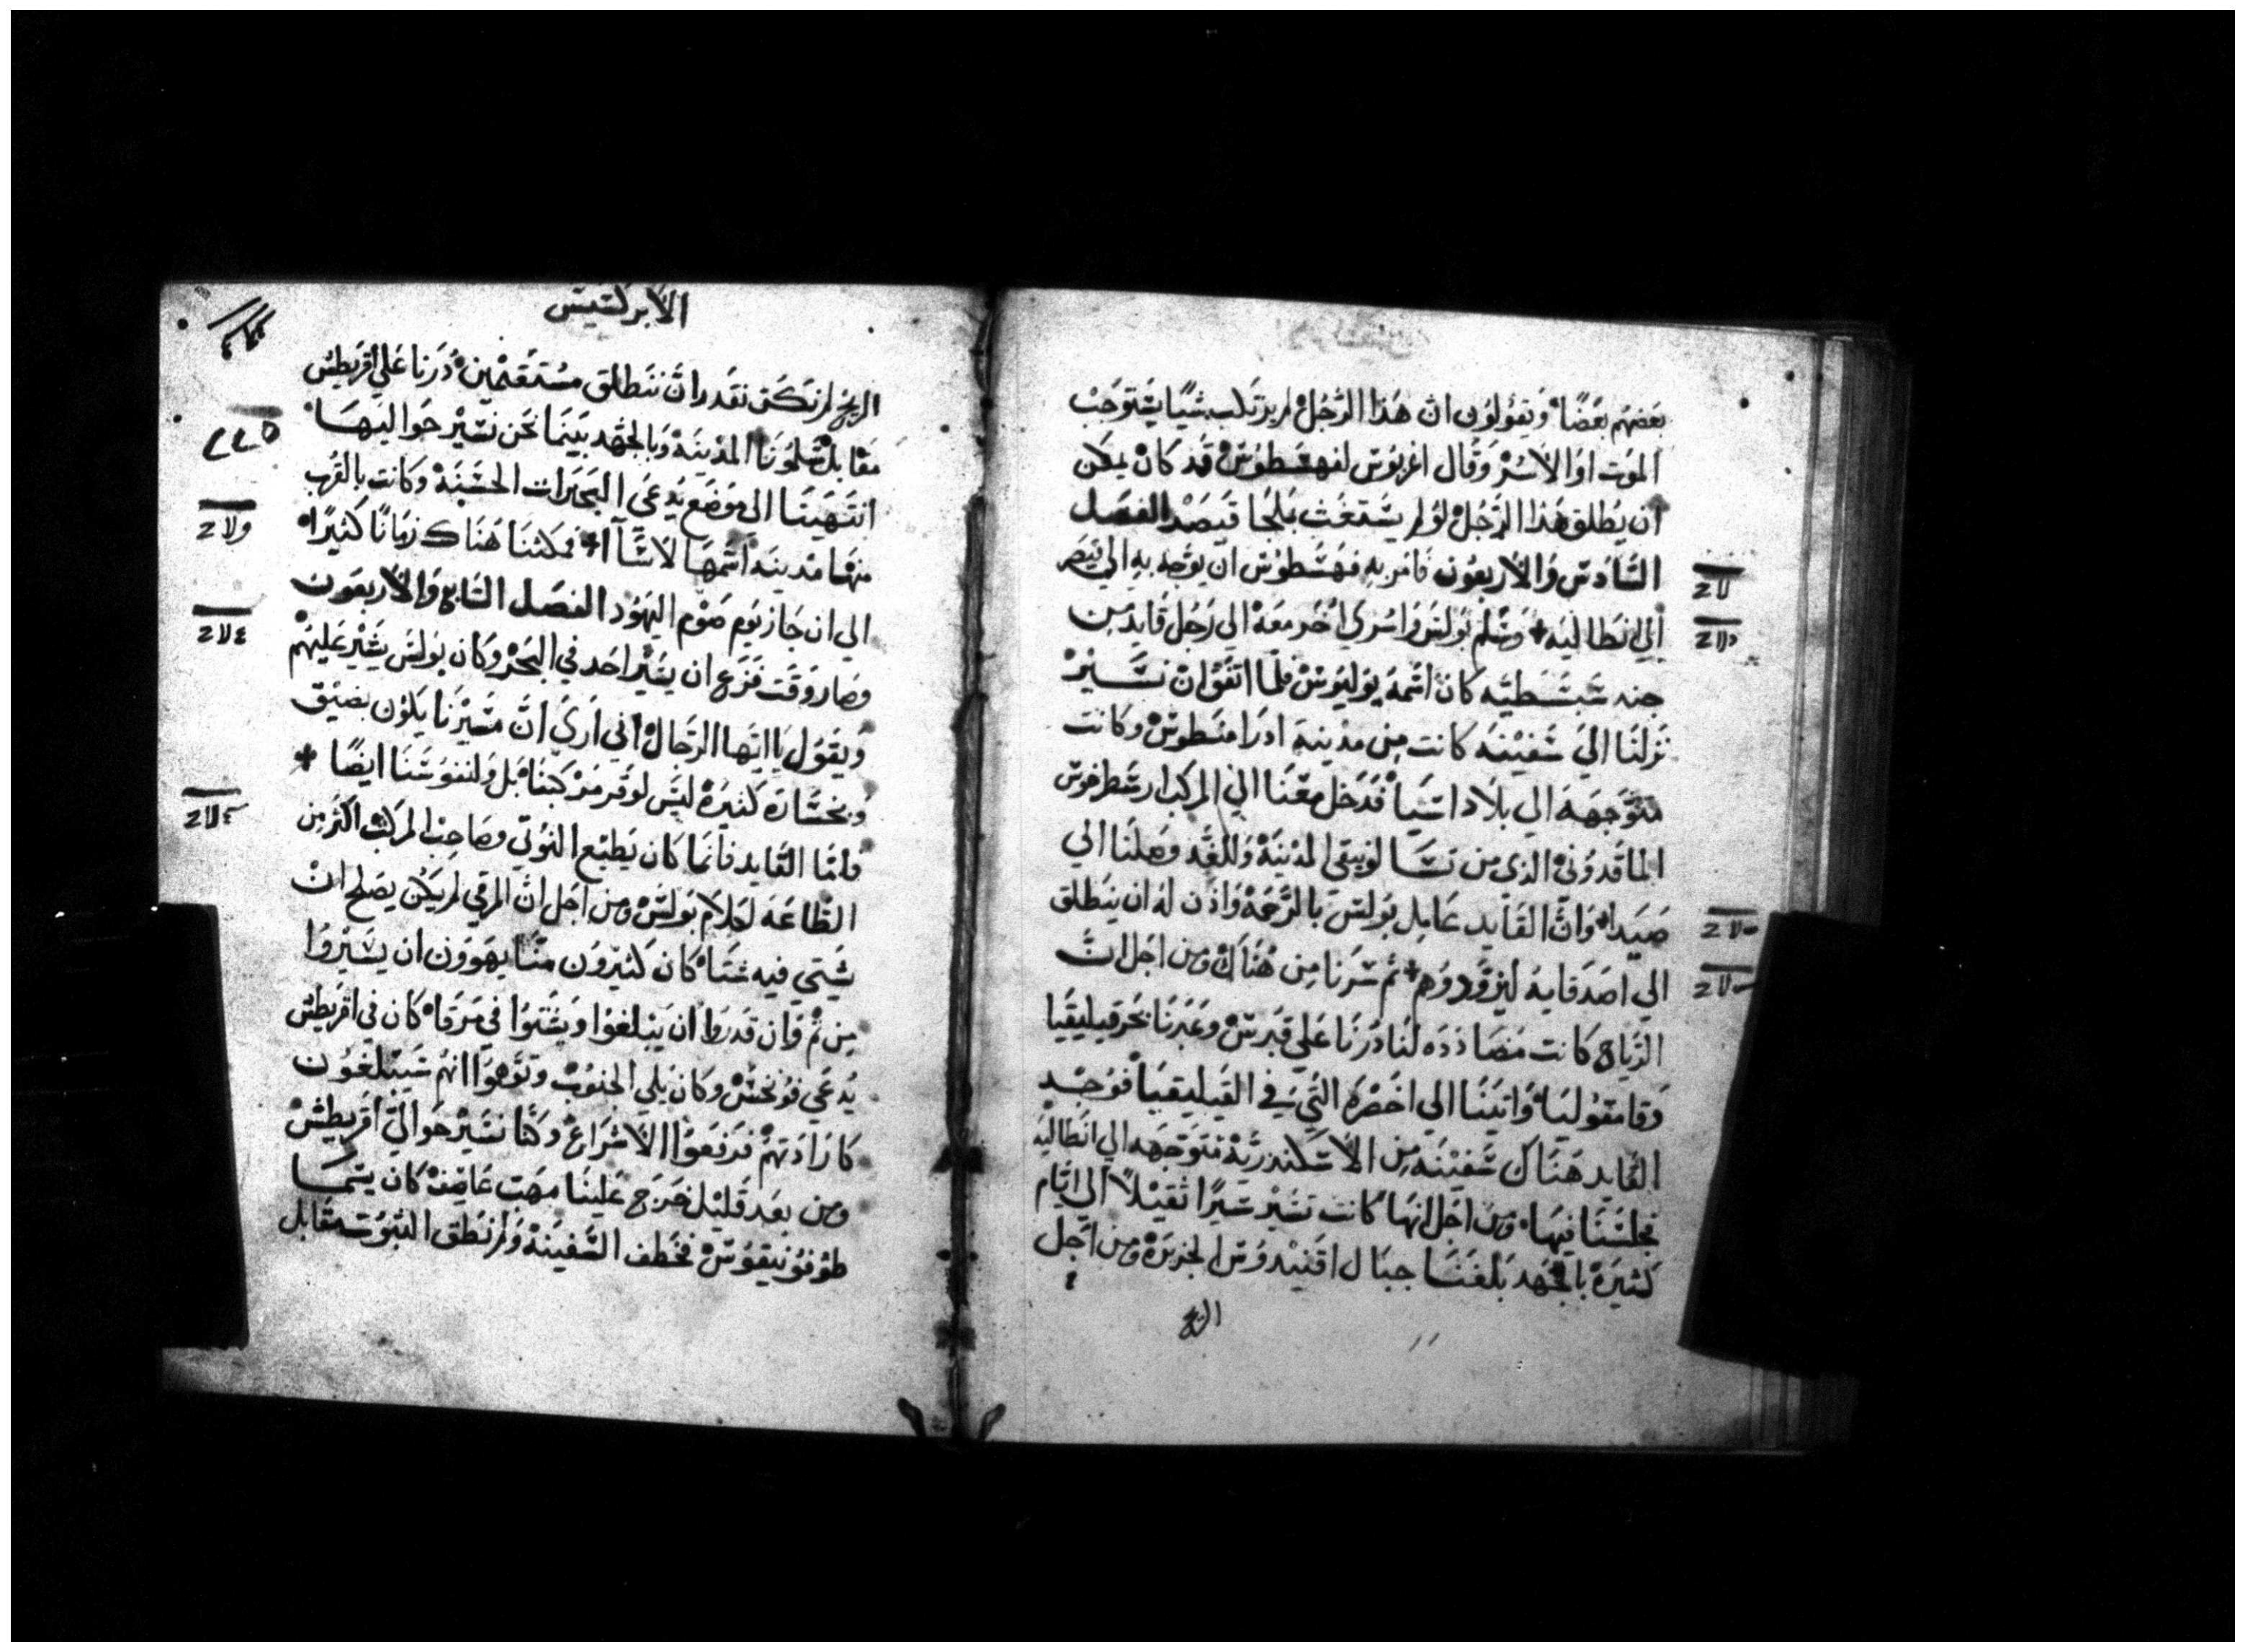 بعضهم بعضًا وَيقولون ان هذا الرَّجُل لم يرتكب شيًا يسْتوجبْ
الموت او الاسْرْ وَقال اغربوس لفهسطوسْ قد كان يمكن
ان يُطلق هذا الرَّجُل لوْ لم يسْتغث بملجا قيصرْ الفصل
السَّادس وَالاربعون فامر بهِ فهسطوس ان يوَجه بهِ الي قيصر
الي انطاليه + وَسَلم بولس وَاسْري اخر معهْ الي رَجُل قايد من
جنه سَبسْطيَّه كان اسْمهُ يوليوسْ فلما اتفق ان نسَيرْ
نزلنا الي سَفينهَ كانت من مدينة ادرَامنطوسْ وكانت
متوَجهه الي بلاد اسيَا فدَخل معنا الي المركب ارسْطرخوس
الماقدوني الذي من تسَالونيقي المدينةْ وَللغد وصلنا الي
صَيدا وَانَّ القايد عَامل بولسَ بالرَّحمة وَاذن له ان ينطلق
الي اصدقايهُ ليزوَّدوهم + ثم سَرنا من هُناك ومن اجل انَّ
الرياح كانت مضادده لنا درنا علي قبرسْ وعَبرنا بحر قيليقيا
وَقامقوليَا وَاتينا الي اخصره التي في القيليقيا فوَجدِ
القايد هناك سَفينه من الاسكندريَّة متوَجهه الي انطاليه
فجلسْنا فيهَا ومن اجل انها كانت تسَير سَيرًا ثقيلاً الي ايام
كثيرَه بالجهد بلغنا جبال اقنيدوس الجزيرَة ومن اجل
الريح
الابركسيس
الريح لم تكن نقدر ان ننطلق مسْتقيمين دُرنا عَلي اقريطش
مقابل سَلمونا المدينه وَبالجهد بينما نحن نسَير حَواليها
انتهينا الي موضع يُدعي البحيرات الحسَنة وكانت بالقرب
منها مدينه اسمها لاسَّا آ + فمكثنا هناك زمانًا كثيرًا
الي ان جاز يوم صوم اليهود الفصل السابع وَالاربعون
وصار وَقت فزع ان يسَير احد في البحر وكان بولس يشير عليهم
ويقول يا ايها الرجال اني اري انَّ مسَيرنا يكون بضيق
وَبخسَاره كثيرة ليس لوقر مركبنا بل ولنفوسَنا ايضًا +
واما القايد فانما كان يَطيع النوتي وصاحب المركب اكثر من
الطاعَة لكلام بولسْ ومن اجل ان المرقي لم يكن يصلح ان
يشتي فيه شتا كان كثيرون منا يهوون ان يسَيروا
من ثم وَان قدروا ان يبلغوا ويشتوا في مرقا كان في اقريطش
يُدعي فونخسْ وكان يلي الجنوبْ وَتوَهموا انهم سَيبلغون
كارادتهم فرفعوا الاشراعْ وكنا نسَير حوَالي اقريطشْ
ومن بعد قليل خرج علينا مهب عَاصف كان يسَمَّا
طوفونيقوسْ فخطف السَّفينة وَلم نطق الثبوت مقابل